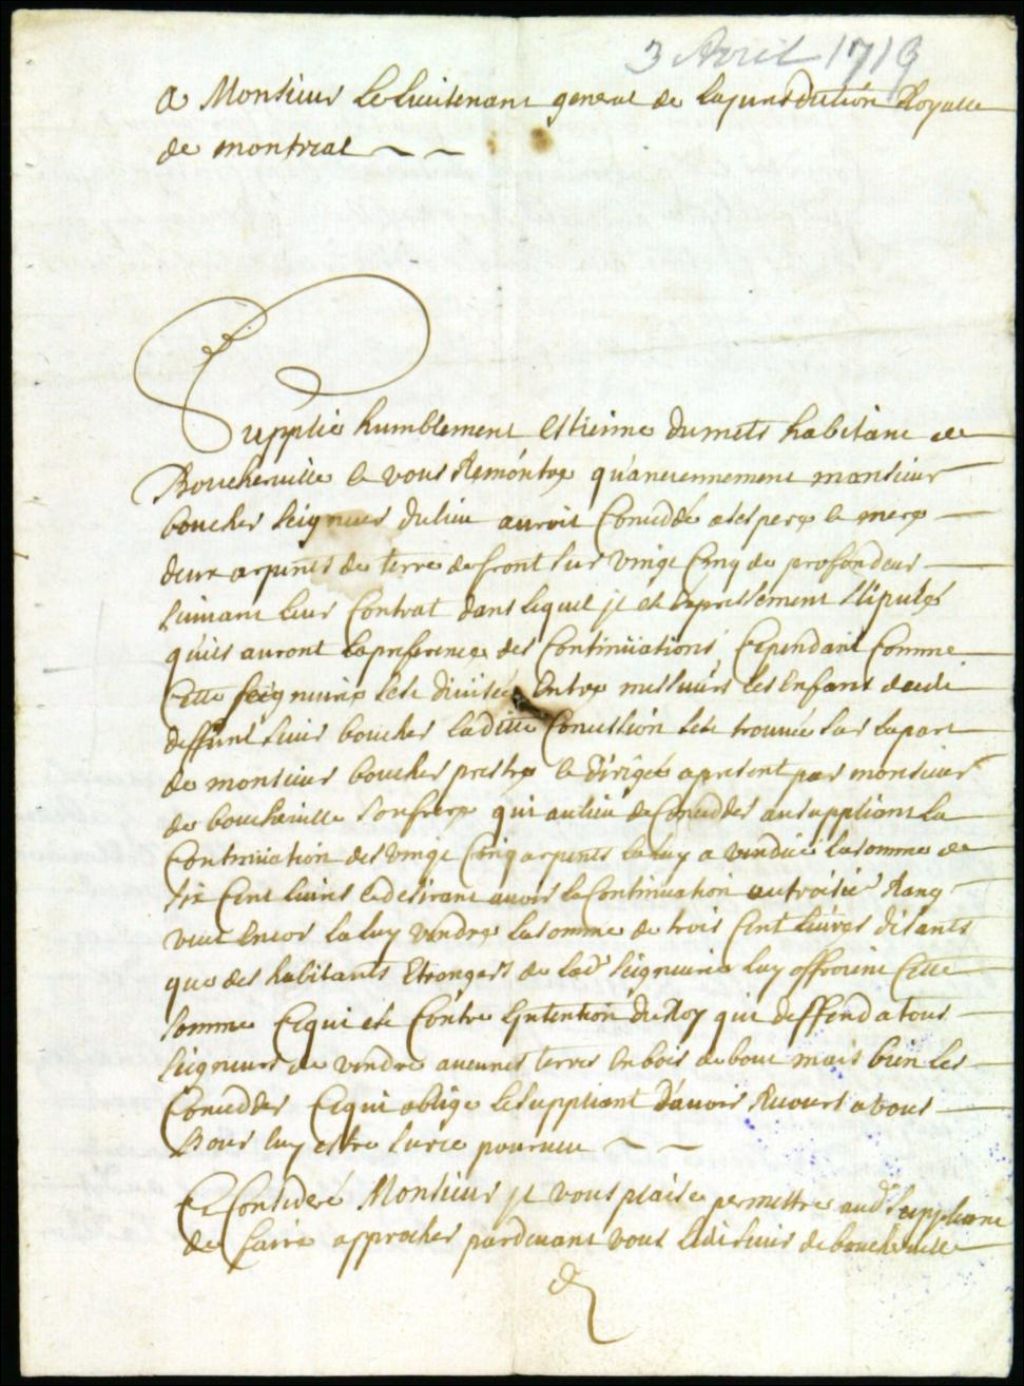 3 Avril 1719
A Monsieur Le Lieutenant general de La Jurisdiction Royalle
de montreal ~ ~
Supplie humblement Estienne dumets habitant de
Boucherville & vous Remóntre qu'anciennement monsieur
boucher Seigneur du lieu auroit Conceddé a ses pere & mere
deux arpents de terre de front sur vingt Cinq de profondeur
Suivant leur Contrat dans lequel jl est Expressement stipulé
quils auront la preference des Continüations Cependant Comme
Cette seigneurie sest divisée Entre messieurs les Enfans de
deffunt sieur boucher ladite Concession sest trouvée sur la part
de monsieur boucher prestre & dirigée apresent par monsieur
de boucherville son frere qui au lieu de Concedder au suppliant La
Continuation des vingt Cinq arpents la luy a vendüe la somme de
six Cent livres & desirant avoir la Continuation au troisie Rang
veut Encor la luy vendre la somme de trois Cent livres disants
que des habitants Etrangers de lad seigneurie luy offroient Cette
somme Cequi est Contre Lintention du Roy qui deffend a tous
seigneurs de vendre aucunes terres En bois de bout mais bien les
Concedder Cequi oblige le suppliant davoir Recours a vous
Pour luy estre surce pourveu ~ ~
Ce Consideré Monsieur jl vous plaise permettre aud Suppliant
de faire approcher pardevant vous ledit sieur de boucherville